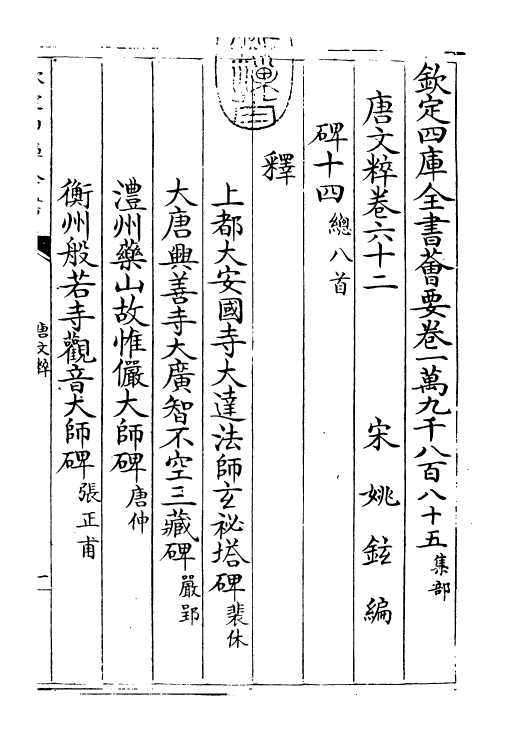 欽定四庫全書薈要卷一萬九千八百八十五集部
唐文粹卷六十二　宋姚鉉編
碑十四總八首
釋
上都大安國寺大達法師玄祕塔碑裴休
大唐興善寺大廣智不空三藏碑嚴郢
澧州藥山故惟儼大師碑唐仲
衡州般若寺觀音大師碑張正甫
唐文粹
一